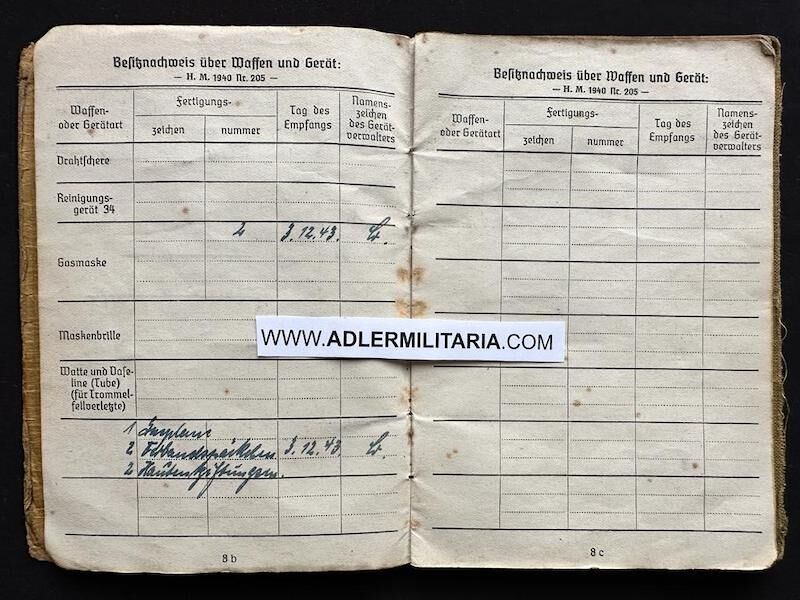 Besitznachweis über Waffen und Gerät:
— H. M. 1940 Nr. 205 —
Waffen- oder Gerätart
Fertigungs-
zeichen
nummer
Tag des Empfangs
Namens-zeichen des Gerät-verwalters
Drahtschere
Reinigungs-
gerät 34
2 3.12.43.
Gasmaske
Maskenbrille
Watte und Vase-
line (Tube)
(für Trommel-
fellverletzte)
1
2 Verbandspäckchen 3.12.43
2
8 b
Besitznachweis über Waffen und Gerät:
— H. M. 1940 Nr. 205 —
Waffen- oder Gerätart
Fertigungs-
zeichen
nummer
Tag des Empfangs
Namens-zeichen des Gerät-verwalters
8 c
WWW.ADLERMILITARIA.COM